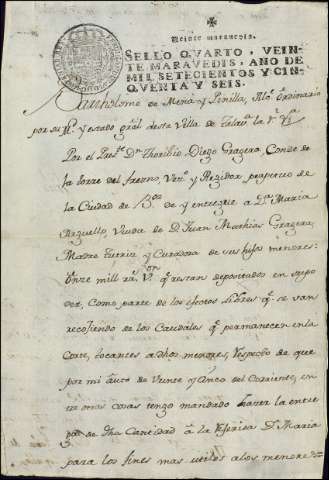 Veinte maravedis.
SELLO QVARTO, VEIN-
TE MARAVEDIS, AÑO DE
MIL SETECIENTOS Y CIN-
QVENTA Y SEIS.
Bartholome de Mena y Pinilla, Alc.e ordinario
por su M. y estado gral desta Villa de Talav.la la R.l
Por el pres.te D.n Thoribio Diego Gragera, Conde de
la torre del fresno, Vez.o y Regidor perpetuo de
la Ciudad de de y entregue a D.a Maria
Arguello, Viuda de D. Juan Mathias Gragera,
Madre tutriz y Curadora de sus hijos menores:
Onze mill r.s V.on q.e restan depositados en su po
der, como parte de los efectos libres q.e se van
recojiendo de los Caudales q.e permanecen en la
Corte, tocantes a dhos menores, respecto de que
por mi auto de Veinte y cinco del Coriente, en
tre otras cosas tengo mandado hazer la entre
ga de dha Cantidad â la referida D.a Maria
para los fines mas utiles a los menores